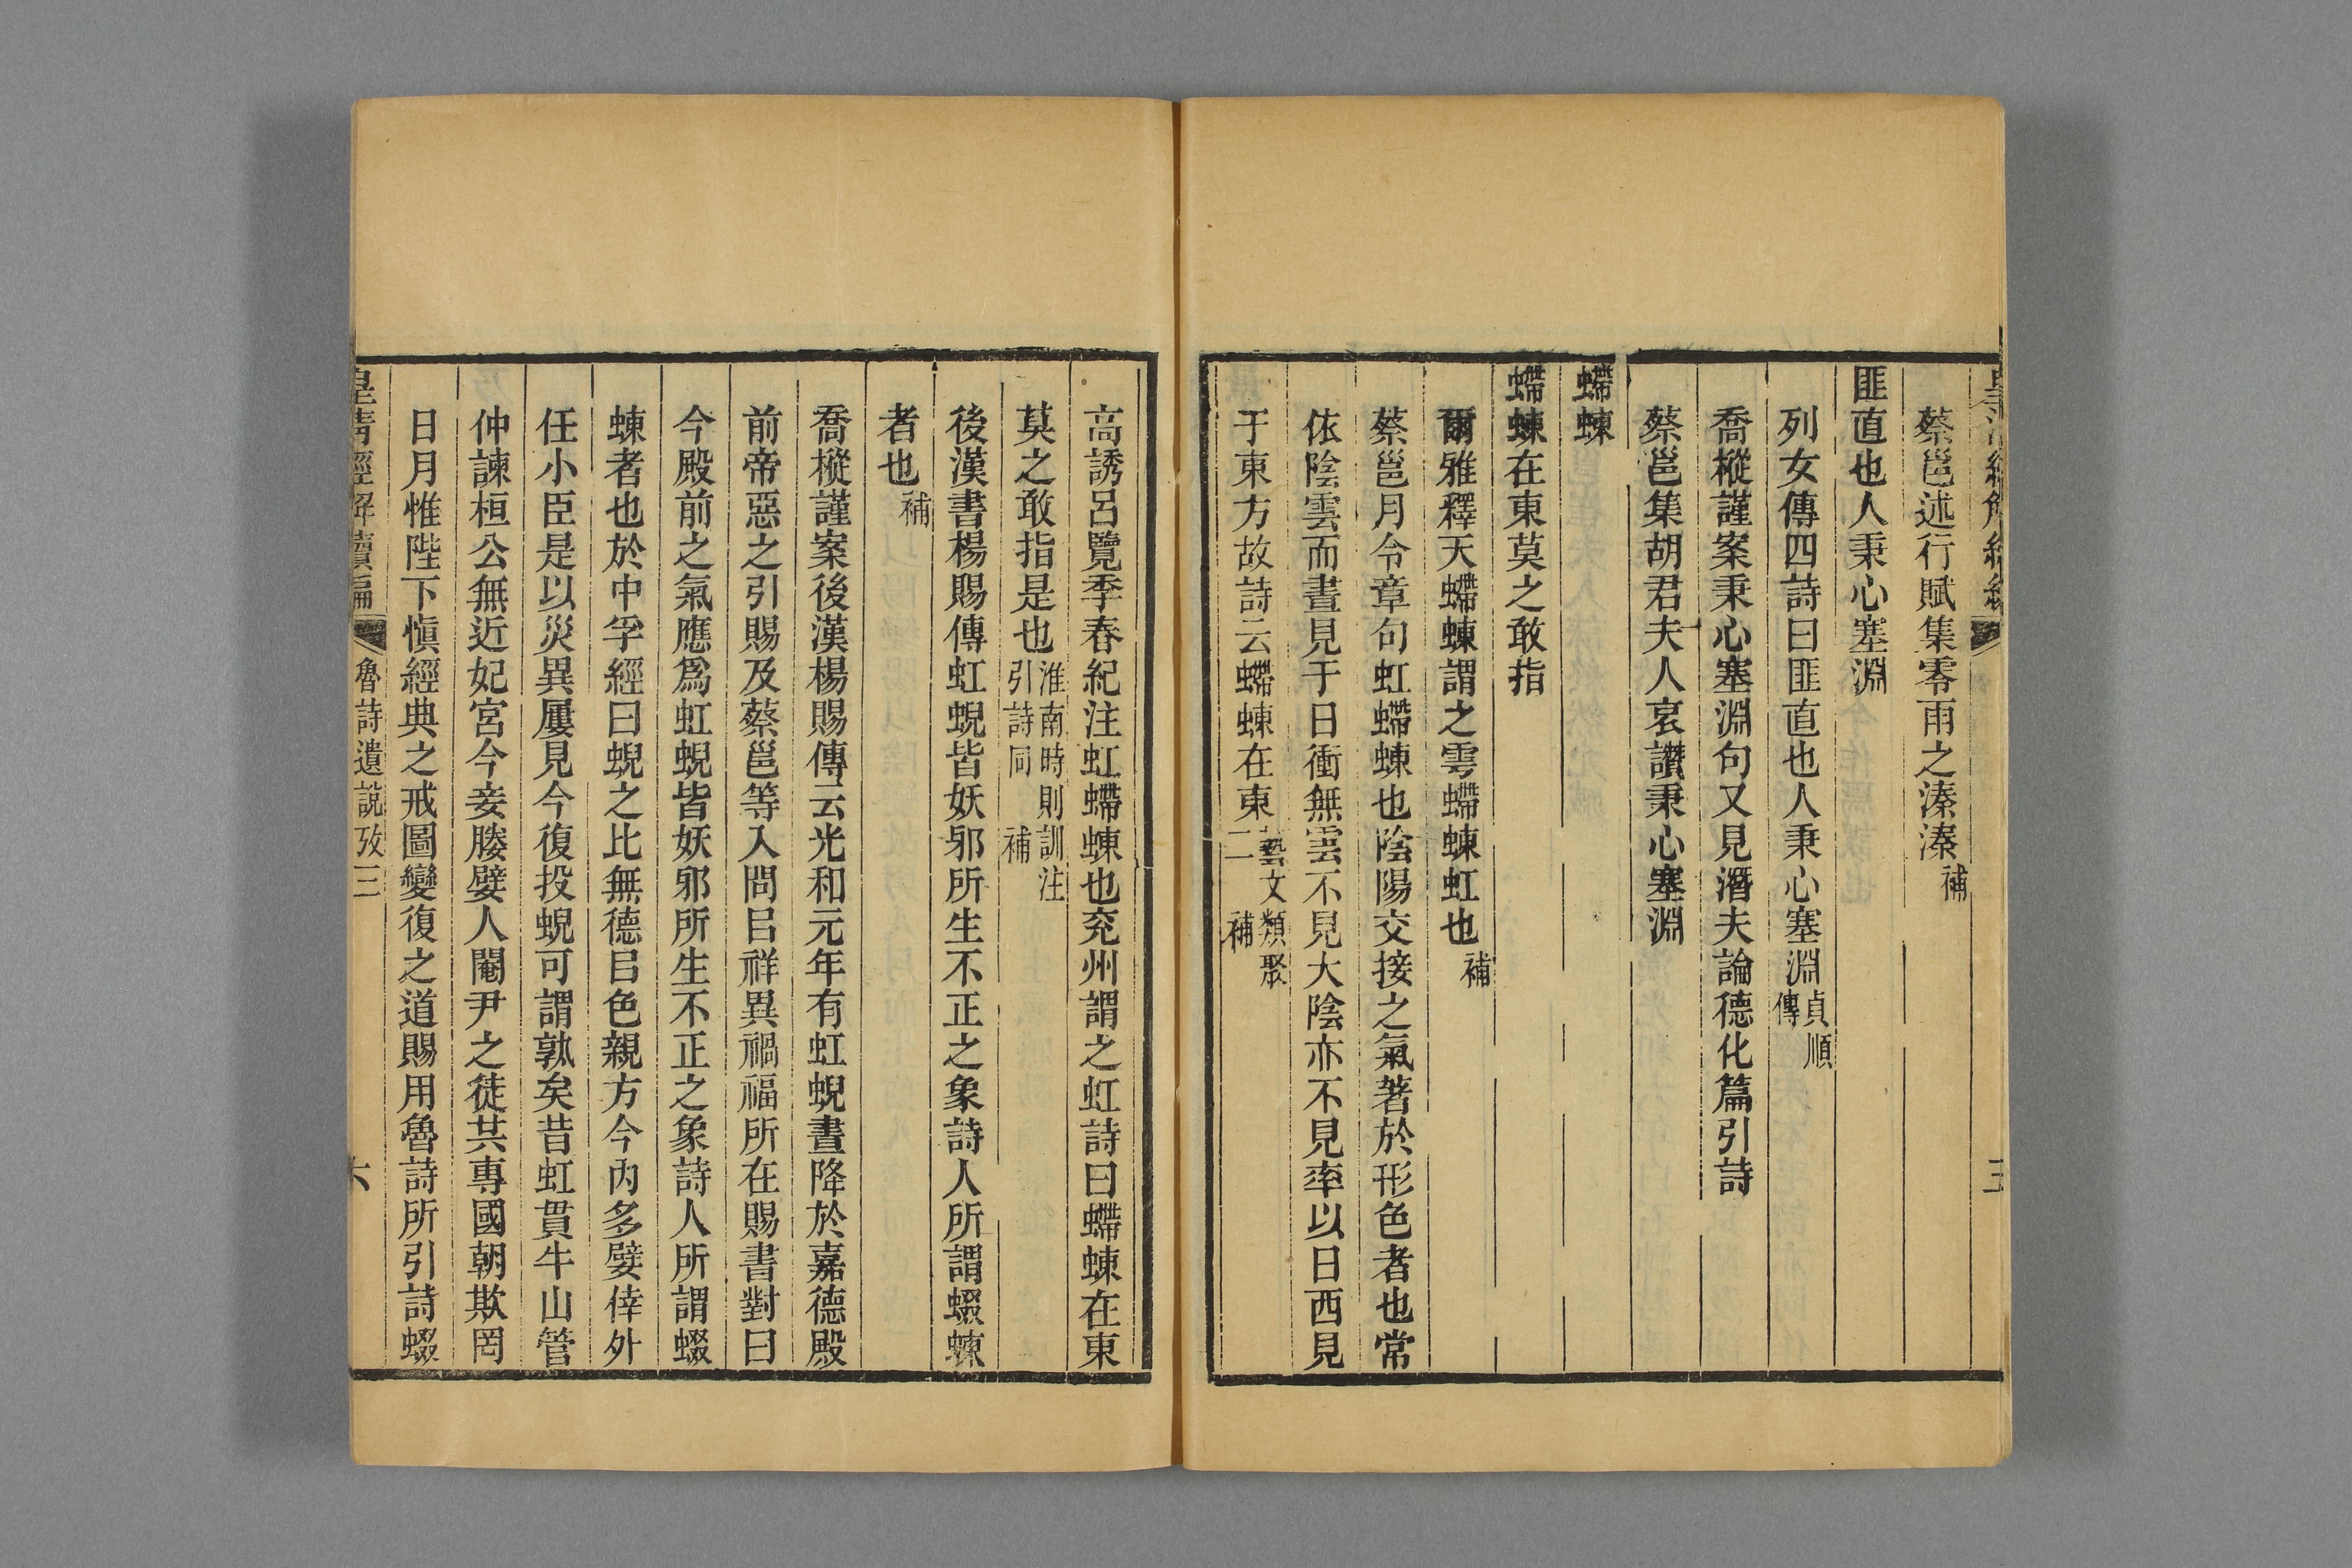 蔡邕述行賦集零雨之溱溱補
匪直也人秉心塞淵
列女傳四詩曰匪直也人秉心塞淵貞順傳
喬樅謹案秉心塞淵句又見潛夫論德化篇引詩
蔡邕集胡君夫人哀讚秉心塞淵
蝃蝀
蝃蝀在東莫之敢指
爾雅釋天螮蝀謂之雩螮蝀虹也補
蔡邕月令章句虹螮蝀也陰陽交接之氣著於形色者也常
依陰雲而晝見于日衝無雲不見大陰亦不見率以日西見
于東方故詩云螮蝀在東藝文類聚二補
高誘呂覽季春紀注虹螮蝀也兗州謂之虹詩曰螮蝀在東
莫之敢指是也淮南時則訓注引詩同補
後漢書楊賜傳虹蜺皆妖邪所生不正之象詩人所謂蝃蝀
者也補
喬樅謹案後漢楊賜傳云光和元年有虹蜺晝降於嘉德殿
前帝惡之引賜及蔡邕等入問㠯祥異禍福所在賜書對曰
今殿前之氣應爲虹蜺皆妖邪所生不正之象詩人所謂蝃
蝀者也於中孚經曰蜺之比無德㠯色親方今內多嬖倖外
任小臣是以災異屢見今復投蜺可謂孰矣昔虹貫牛山管
仲諫桓公無近妃宮今妾媵嬖人閹尹之徒共專國朝欺罔
日月惟陛下愼經典之戒圖變復之道賜用魯詩所引詩蝃
皇清經解續編 魯詩遺說攷三 六